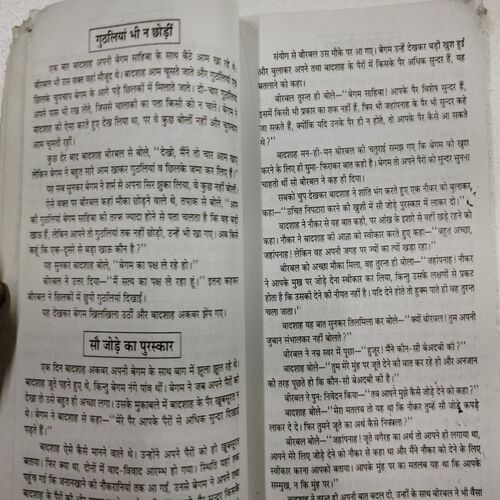 गुठलियां भी न छोड़ीं
एक बार बादशाह अपनी बेगम साहिबा के साथ बैठे आम खा रहे थे।
बीरबल भी उस वक्त वहां मौजूद थे। बादशाह आम चूसते जाते और गुठलियां एवं
छिलके चुपचाप बेगम के आगे पड़े छिलकों में मिलाते जाते। दो-चार गुठलियां
अपने पास भी रख लेते, जिससे चालाकी का पता किसी को न चले। बेगम ने
बादशाह को ऐसा करते हुए देख लिया था, पर वे कुछ बोलीं नहीं और चुपचाप
आम चूसती रहीं।
कुछ देर बाद बादशाह बीरबल से बोले, "देखो, मैंने तो चार आम खाए
लेकिन बेगम ने बहुत सारे आम खाकर गुठलियां व छिलके जमा कर लिए हैं।"
यह सब सुनकर बेगम ने शर्म से अपना सिर झुका लिया, वे कुछ नहीं बोलीं।
ऐसे वक्त पर बीरबल कहां मौका छोड़ने वाले थे, तपाक से बोले, "आम
की गुठलियां बेगम साहिबा की तरफ ज्यादा होने से पता चलता है कि वह बड़ी
खाऊ हैं, लेकिन आपने तो गुठलियां तक नहीं छोड़ी, उन्हें भी खा गए। अब किसे
कहूं कि एक-दूसरे से बड़ा खाऊ कौन है?"
यह सुनकर बादशाह बोले, "बेगम का पक्ष ले रहे हो।"
बीरबल ने उत्तर दिया—"मैं सत्य का पक्ष ले रहा हूं।" इतना कहकर
बीरबल ने छिलकों में छुपी गुठलियां दिखाईं।
यह देखकर बेगम खिलखिला उठीं और बादशाह अकबर झेंप गए।
सौ जोड़े का पुरस्कार
एक दिन बादशाह अकबर अपनी बेगम के साथ बाग में झूला झूल रहे थे।
बादशाह जूते पहने हुए थे, किन्तु बेगम नंगे पांव थीं। बेगम ने जब अपने पैरों को
देखा तो उसे बहुत ही अच्छा लगा। उसके मुकाबले में बादशाह के पैर खूबसूरत न
थे। बेगम ने बादशाह से कहा—"मेरे पैर आपके पैरों से अधिक सुन्दर दिखाई
पड़ते हैं।"
बादशाह ऐसे कैसे मानने वाले थे। उन्होंने अपने पैरों को ही खूबसूरत
बताया। फिर क्या था, दोनों में वाद-विवाद आरम्भ हो गया। स्थिति यहां तक
पहुंच गई कि जनानखाने की नौकरानियां तक आ गईं, उनसे बेगम ने अपने तथा
संयोग से बीरबल उस मौके पर आ गए। बेगम उन्हें देखकर बड़ी खुश हुईं
और बुलाकर अपने तथा बादशाह के पैरों में किसके पैर अधिक सुन्दर हैं, यह
बतलाने को कहा।
बीरबल तुरन्त ही बोले—"बेगम साहिबा! आपके पैर विशेष सुन्दर हैं,
इसमें किसी भी प्रकार का शक नहीं हैं, फिर भी जहांपनाह के पैर भी सुन्दर कहे
जा सकते हैं, क्योंकि यदि उनके पैर ही न होते, तो आपके पैर कैसे आ सकते
थे?"
बादशाह मन-ही-मन बीरबल की चतुराई समझ गए कि बेगम को खुश
करने के लिए ही घुमा-फिराकर बात कही है। बेगम तो अपने पैरों को सुन्दर सुनना
चाहती थीं सो बीरबल ने कह ही दिया।
सबको चुप देखकर बादशाह ने शांति भंग करते हुए एक नौकर को बुलाकर
कहा—"उचित निपटारा करने की खुशी में सौ जोड़े पुरस्कार में लाकर दो।"
बादशाह ने नौकर से यह बात कही, पर आंख के इशारे से वहीं खड़े रहने को
कहा। नौकर ने बादशाह की आज्ञा को स्वीकार करते हुए कहा—"बहुत अच्छा,
जहांपनाह! लेकिन वह अपनी जगह पर ज्यों का त्यों खड़ा रहा।"
बीरबल को अच्छा मौका मिला, वह तुरन्त ही बोला—"जहांपनाह! नौकर
ने आपके मुख पर जोड़े देना स्वीकार कर लिया, किन्तु उसके लक्षणों से प्रकट
होता है कि उसकी देने की नीयत नहीं है। यदि देने होते तो हुक्म पाते ही यह तुरन्त
चला जाता।"
बादशाह यह बात सुनकर तिलमिला कर बोले—"क्यों बीरबल! तुम अपनी
जुबान संभालकर नहीं बोलते?"
बीरबल ने नम्र स्वर में पूछा—"हुजूर! मैंने कौन-सी बेअदबी की?"
बादशाह बोले—"तुम मेरे मुंह पर जूते देने की बात कर रहे हो और अनजान
की तरह पूछते हो कि कौन-सी बेअदबी की है।"
बीरबल ने पुन: निवेदन किया—"तब आपने मुझे कैसे जोड़े देने को कहा?"
बादशाह बोले—"मेरा मतलब तो यह था कि नौकर तुम्हें सौ जोड़े कपड़े
लाकर दे दे। फिर तुमने जूते का अर्थ कैसे निकाला?"
बीरबल बोले—"जहांपनाह! जूते वगैरह का अर्थ तो आपने ही लगाया था,
आपने मेरे लिए जोड़े देने को नौकर से कहा था और मैंने नौकर को देने के लिए
स्वीकार करना आपको बताया। आपके मुंह पर का मतलब यह था कि आपके
सम्मुख, न कि मुंह पर।"